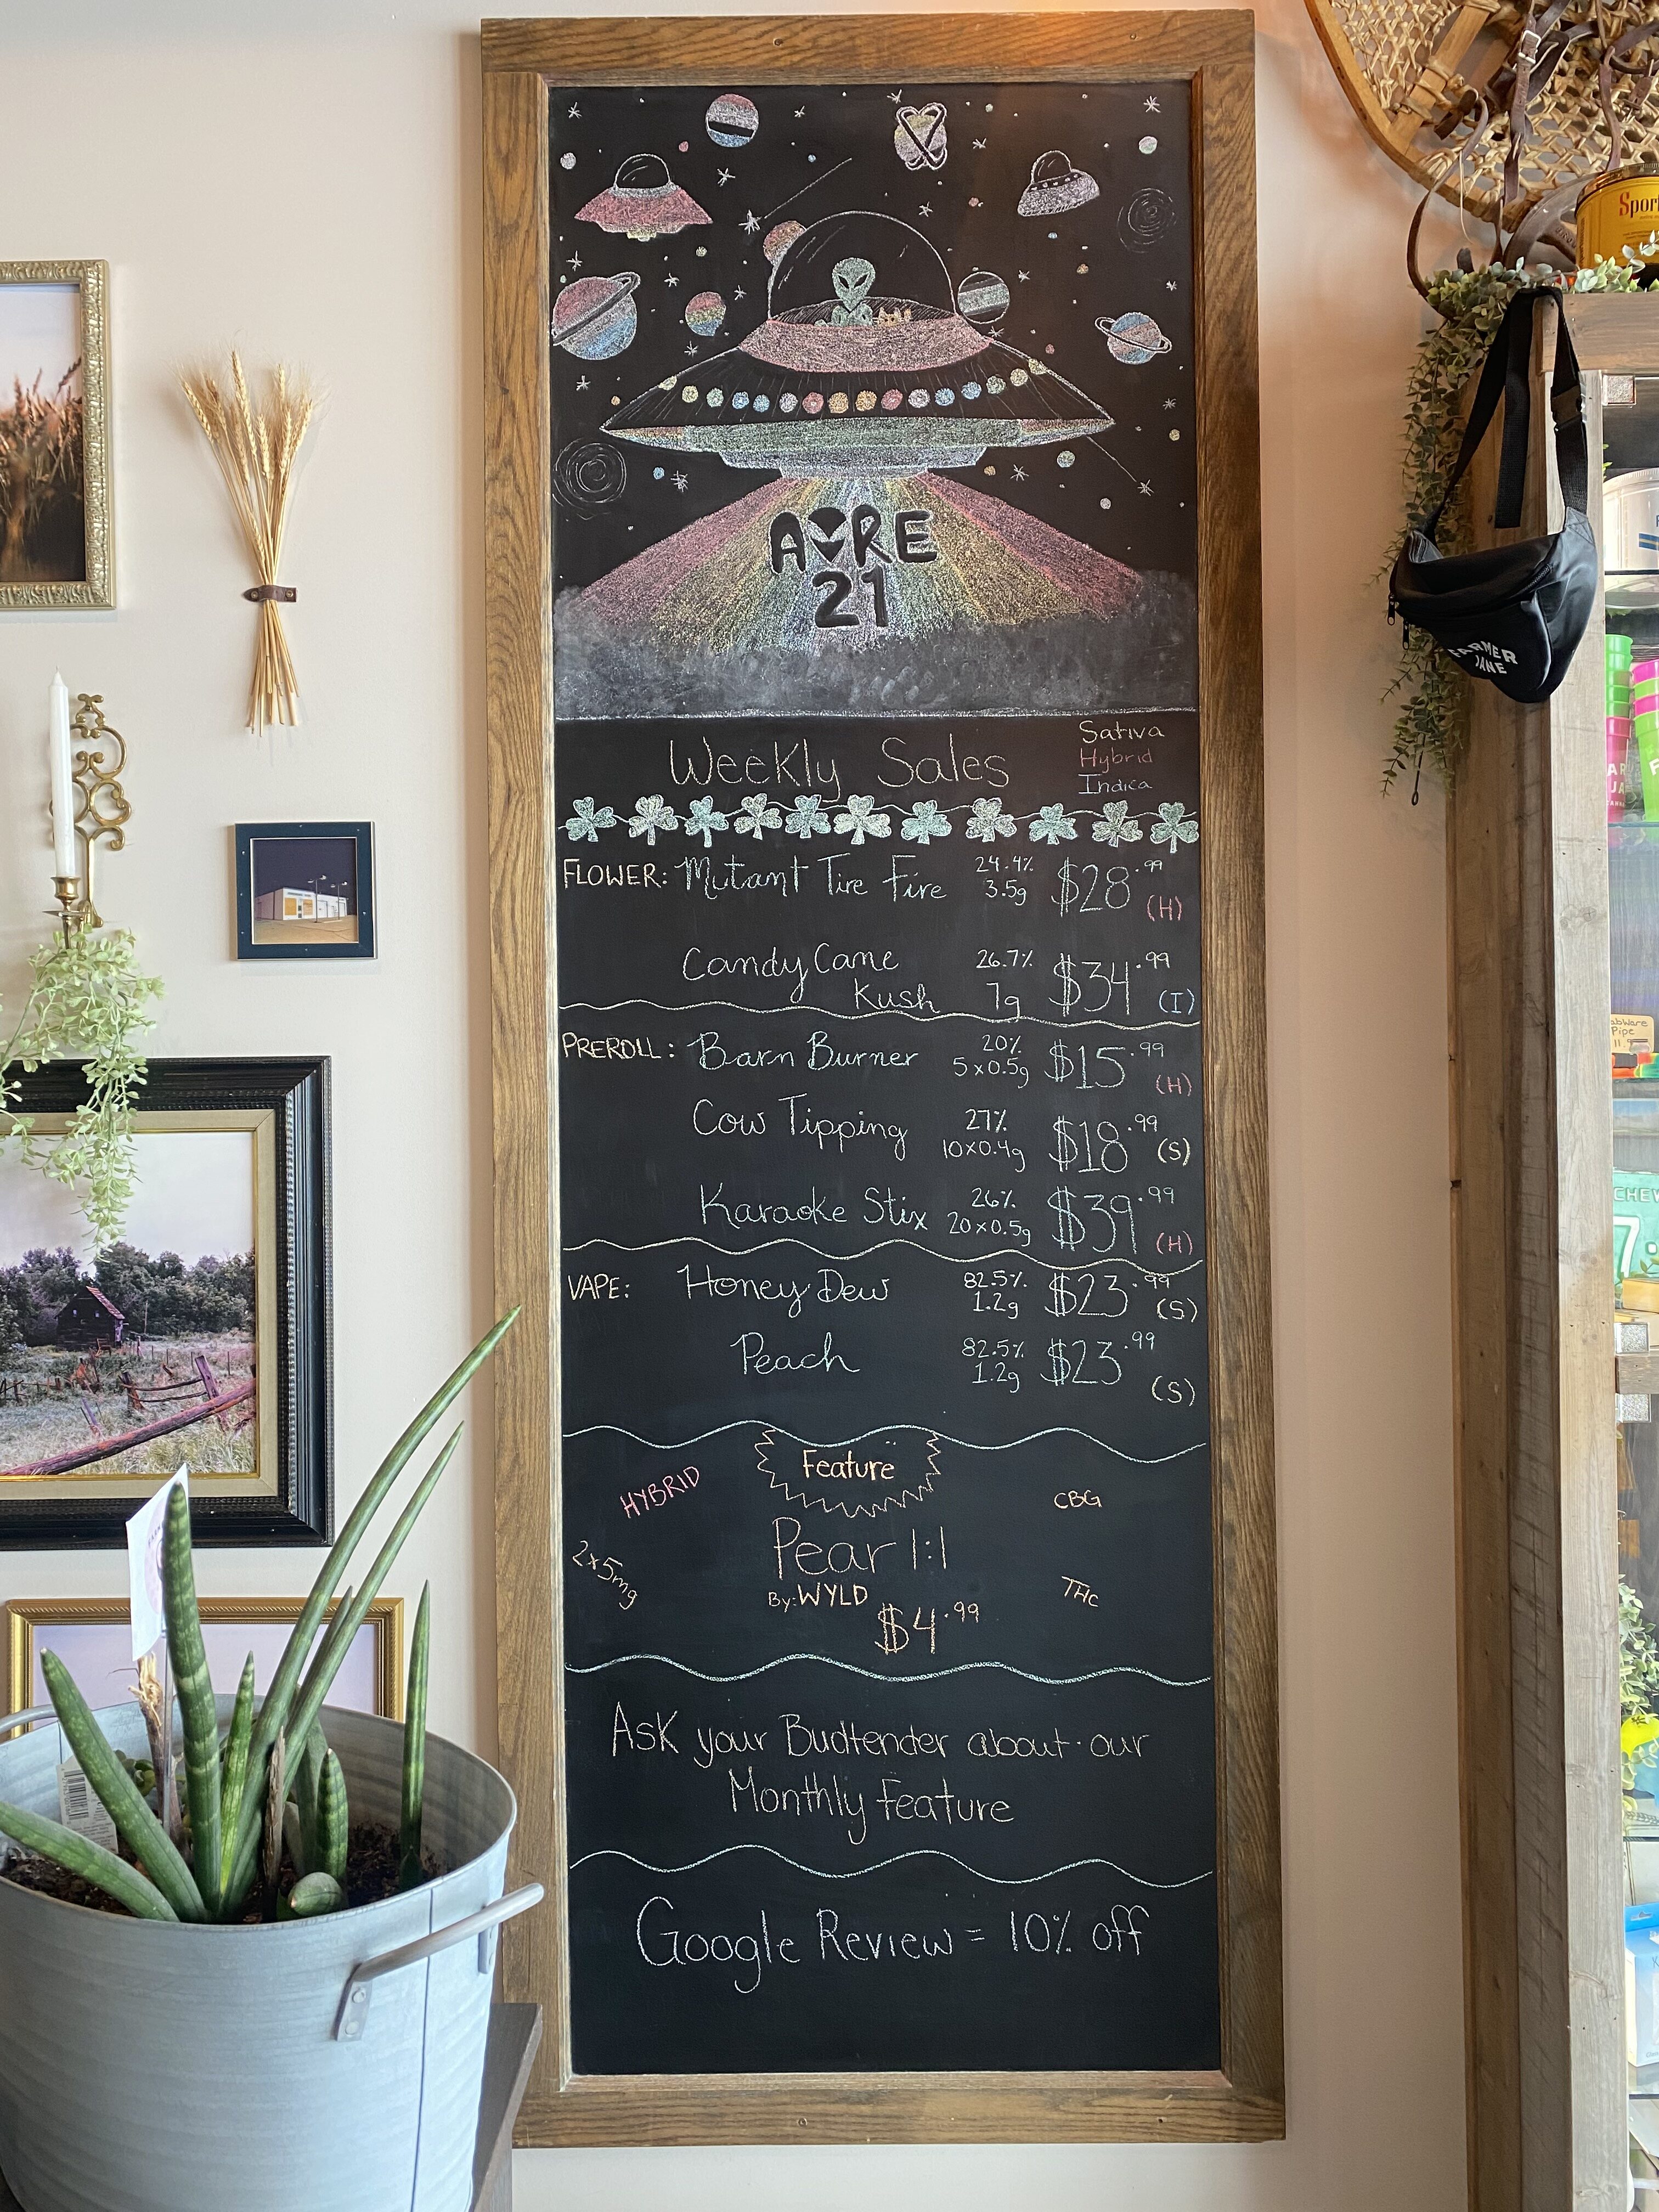 A RE
21
Weekly Sales
Sativa
Hybrid
Indica
FLOWER: Mutant Tire Fire 24.4% 3.5g $28.99 (H)
Candy Cane Kush 26.7% 7g $34.99 (I)
PREROLL: Barn Burner 20% 5x0.5g $15.99 (H)
Cow Tipping 27% 10x0.4g $18.99 (S)
Karaoke Stix 26% 20x0.5g $39.99 (H)
VAPE: Honey Dew 82.5% 1.2g $23.99 (S)
Peach 82.5% 1.2g $23.99 (S)
Feature
HYBRID
CBG
Pear 1:1
2x5mg
By: WYLD
THC
$4.99
Ask your Budtender about our
Monthly Feature
Google Review = 10% off
FARMER
JANE
Spor